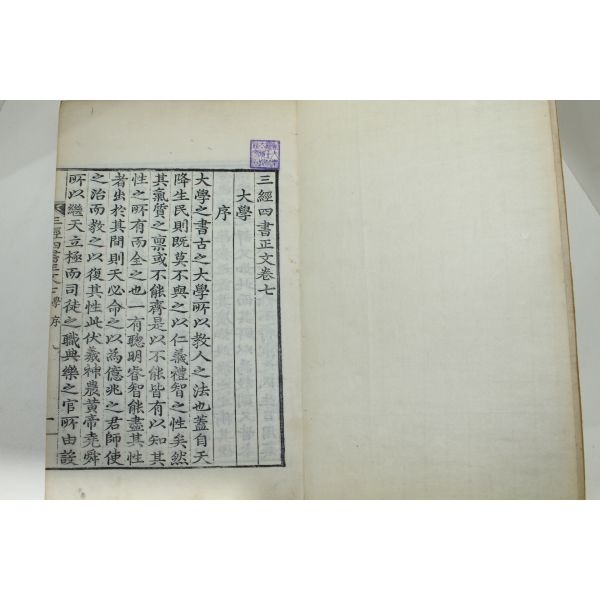 三經四書正文卷七
大學
序
大學之書古之大學所以教人之法也蓋自天
降生民則既莫不與之以仁義禮智之性矣然
其氣質之稟或不能齊是以不能皆有以知其
性之所有而全之也一有聰明睿智能盡其性
者出於其間則天必命之以為億兆之君師使
之治而教之以復其性此伏羲神農黃帝堯舜
所以繼天立極而司徒之職典樂之官所由設
三經四書正文七學序
一